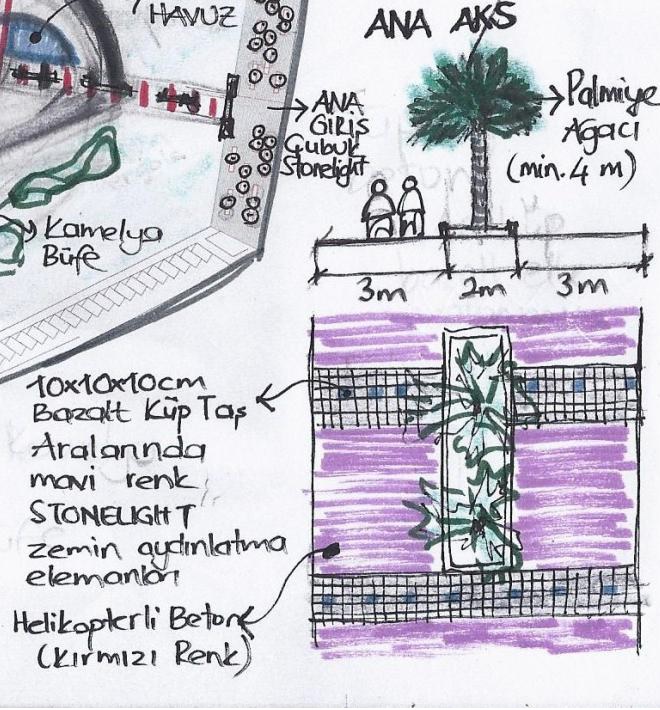 HAVUZ
ANA AKS
ANA
GİRİŞ
Çubuk
Stonelight
Palmiye
Ağacı
(min. 4 m)
Kamelya
Büfe
3m
2m
3m
10x10x10cm
Bazalt Küp Taş
Aralarında
mavi renk
STONELIGHT
zemin aydınlatma
elemanları
Helikopterli Beton
(Kırmızı Renk)